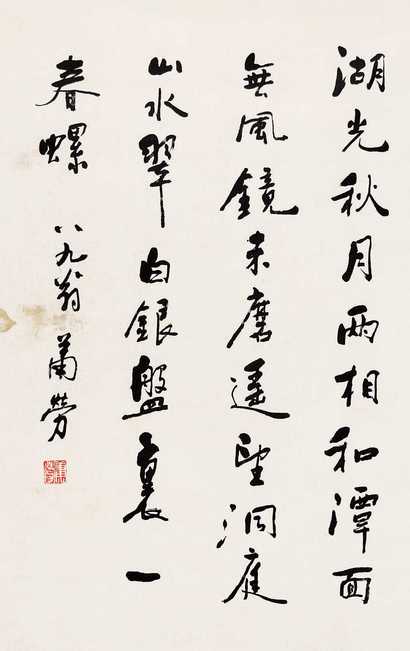 湖光秋月兩相和潭面
無風鏡未磨遙望洞庭
山水翠白銀盤裏一
春螺 八九翁蕭勞